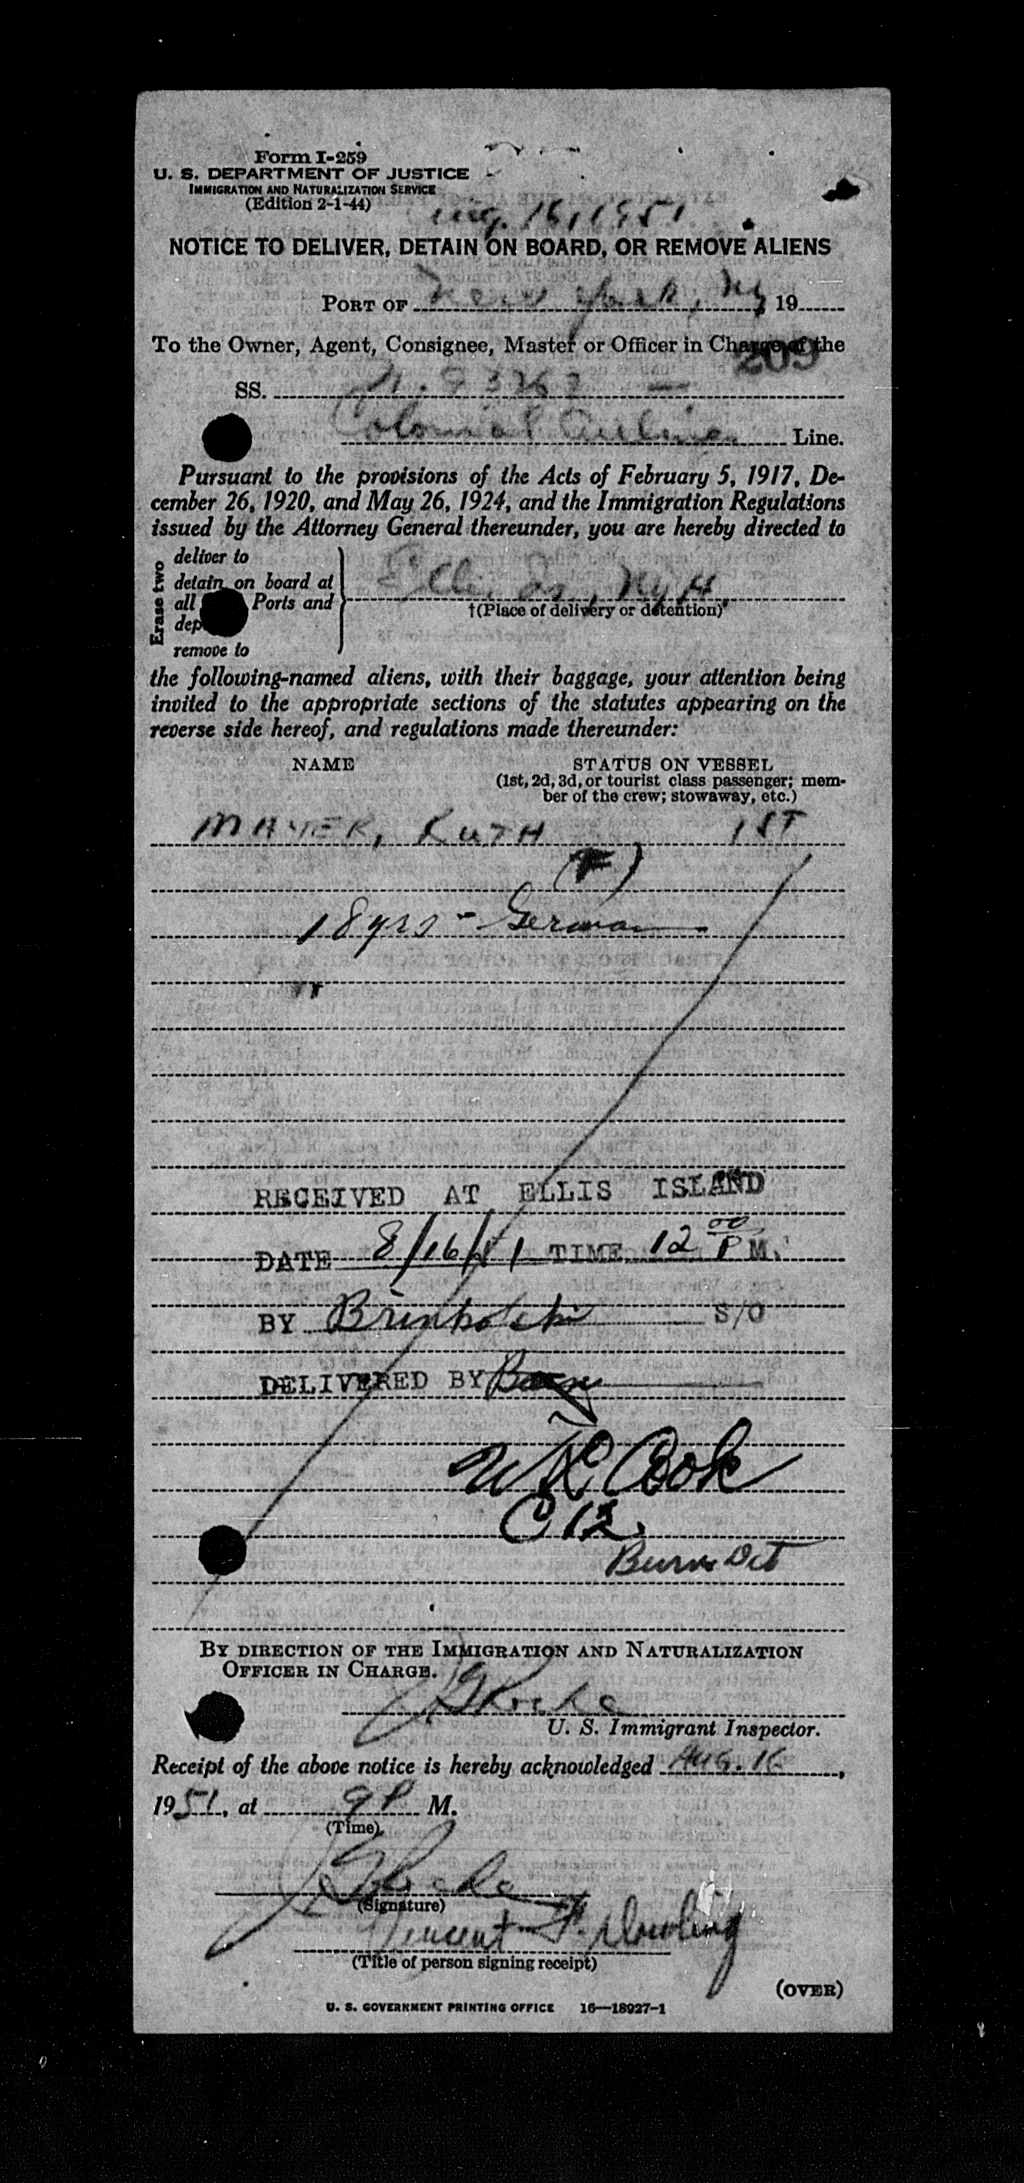 Form I-259
U. S. DEPARTMENT OF JUSTICE
IMMIGRATION AND NATURALIZATION SERVICE
(Edition 2-1-44)
Aug. 16, 1951
NOTICE TO DELIVER, DETAIN ON BOARD, OR REMOVE ALIENS
PORT OF New York, Ny 19
To the Owner, Agent, Consignee, Master or Officer in Charge of the
209
SS. N. 93267 —
Colonial Airlines Line.
Pursuant to the provisions of the Acts of February 5, 1917, De-
cember 26, 1920, and May 26, 1924, and the Immigration Regulations
issued by the Attorney General thereunder, you are hereby directed to
Erase two
deliver to
detain on board at
all Ports and
dep
remove to
Ellis Is, Ny H.
†(Place of delivery or detention)
the following-named aliens, with their baggage, your attention being
invited to the appropriate sections of the statutes appearing on the
reverse side hereof, and regulations made thereunder:
NAME STATUS ON VESSEL
(1st, 2d, 3d, or tourist class passenger; mem-
ber of the crew; stowaway, etc.)
MAYER, RUTH 1ST
(F)
18 yrs - German
RECEIVED AT ELLIS ISLAND
DATE 8/16/51 TIME 12 00 P M.
BY S/O
DELIVERED BY
W K Cook
C 12
Burns Det
BY DIRECTION OF THE IMMIGRATION AND NATURALIZATION
OFFICER IN CHARGE.
U. S. Immigrant Inspector.
Receipt of the above notice is hereby acknowledged Aug. 16,
1951, at 9P M.
(Time)
(Signature)
Vincent F. Dowling
(Title of person signing receipt)
(OVER)
U. S. GOVERNMENT PRINTING OFFICE 16—18927-1